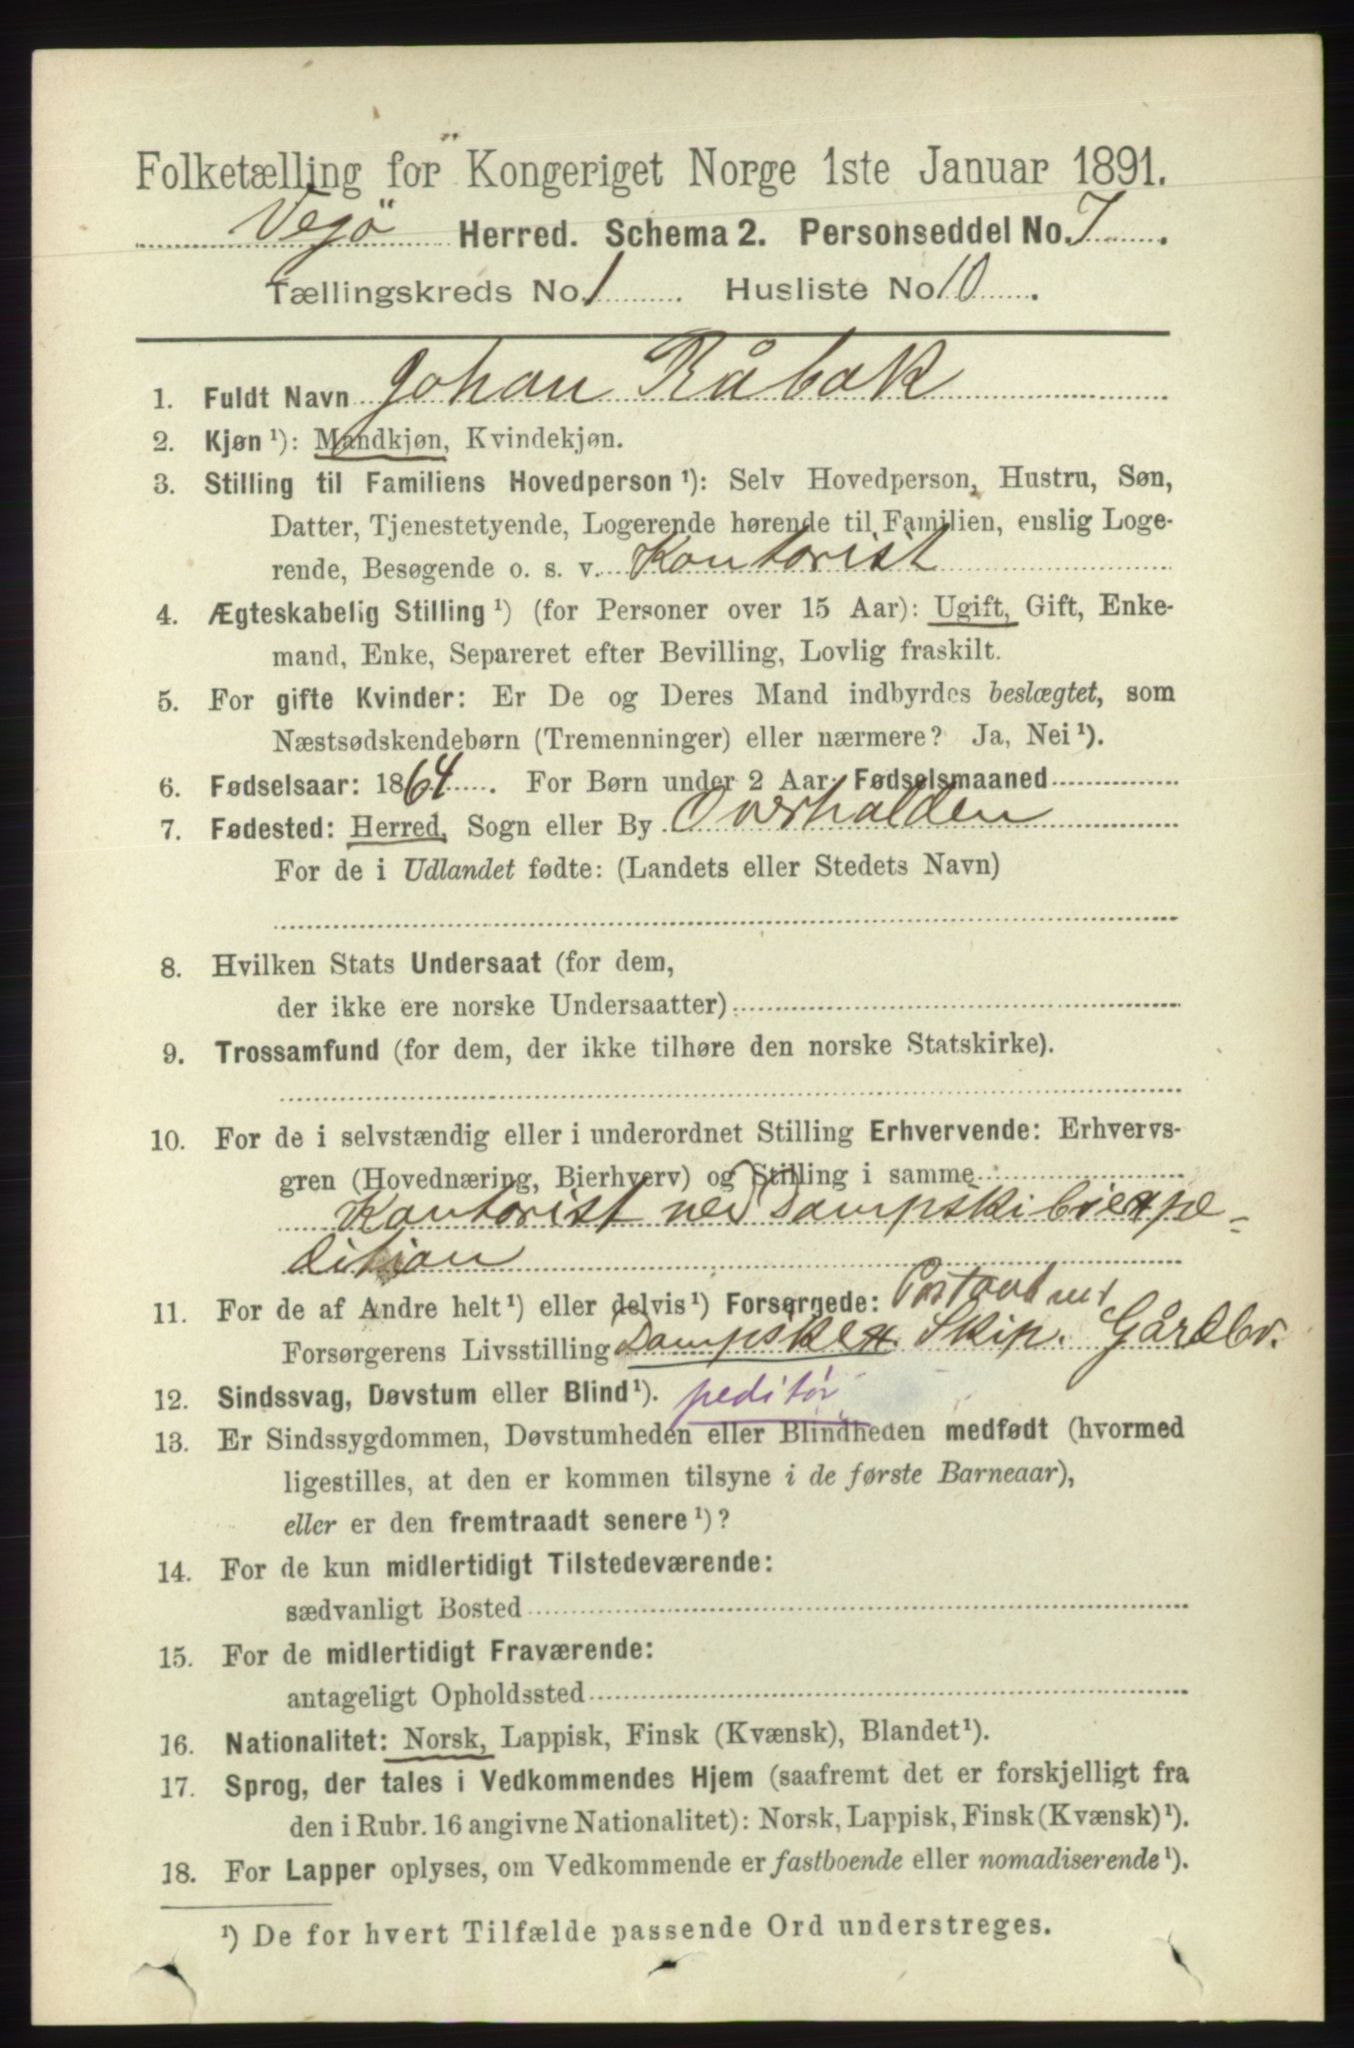 Folketælling for Kongeriget Norge 1ste Januar 1891.
Vegö Herred. Schema 2. Personseddel No. 7.
Tællingskreds No. 1. Husliste No 10.
1. Fuldt Navn Johan Råbak
2. Kjøn ¹): Mandkjøn, Kvindekjøn.
3. Stilling til Familiens Hovedperson ¹): Selv Hovedperson, Hustru, Søn,
Datter, Tjenestetyende, Logerende hørende til Familien, enslig Loge-
rende, Besøgende o. s. v. Kontorist
4. Ægteskabelig Stilling ¹) (for Personer over 15 Aar): Ugift, Gift, Enke-
mand, Enke, Separeret efter Bevilling, Lovlig fraskilt.
5. For gifte Kvinder: Er De og Deres Mand indbyrdes beslægtet, som
Næstsødskendebørn (Tremenninger) eller nærmere? Ja, Nei ¹).
6. Fødselsaar: 1864. For Børn under 2 Aar: Fødselsmaaned
7. Fødested: Herred, Sogn eller By Overhalden
For de i Udlandet fødte: (Landets eller Stedets Navn)
8. Hvilken Stats Undersaat (for dem,
der ikke ere norske Undersaatter)
9. Trossamfund (for dem, der ikke tilhøre den norske Statskirke).
10. For de i selvstændig eller i underordnet Stilling Erhvervende: Erhvervs-
gren (Hovednæring, Bierhverv) og Stilling i samme
Kontorist ved Dampskibsexpe-
dition
11. For de af Andre helt ¹) eller delvis ¹) Forsørgede:
Forsørgerens Livsstilling Dampskex. Skip. Gårdbr.
12. Sindssvag, Døvstum eller Blind ¹). peditör
13. Er Sindssygdommen, Døvstumheden eller Blindheden medfødt (hvormed
ligestilles, at den er kommen tilsyne i de første Barneaar),
eller er den fremtraadt senere ¹)?
14. For de kun midlertidigt Tilstedeværende:
sædvanligt Bosted
15. For de midlertidigt Fraværende:
antageligt Opholdssted
16. Nationalitet: Norsk, Lappisk, Finsk (Kvænsk), Blandet ¹).
17. Sprog, der tales i Vedkommendes Hjem (saafremt det er forskjelligt fra
den i Rubr. 16 angivne Nationalitet): Norsk, Lappisk, Finsk (Kvænsk) ¹).
18. For Lapper oplyses, om Vedkommende er fastboende eller nomadiserende ¹).
¹) De for hvert Tilfælde passende Ord understreges.